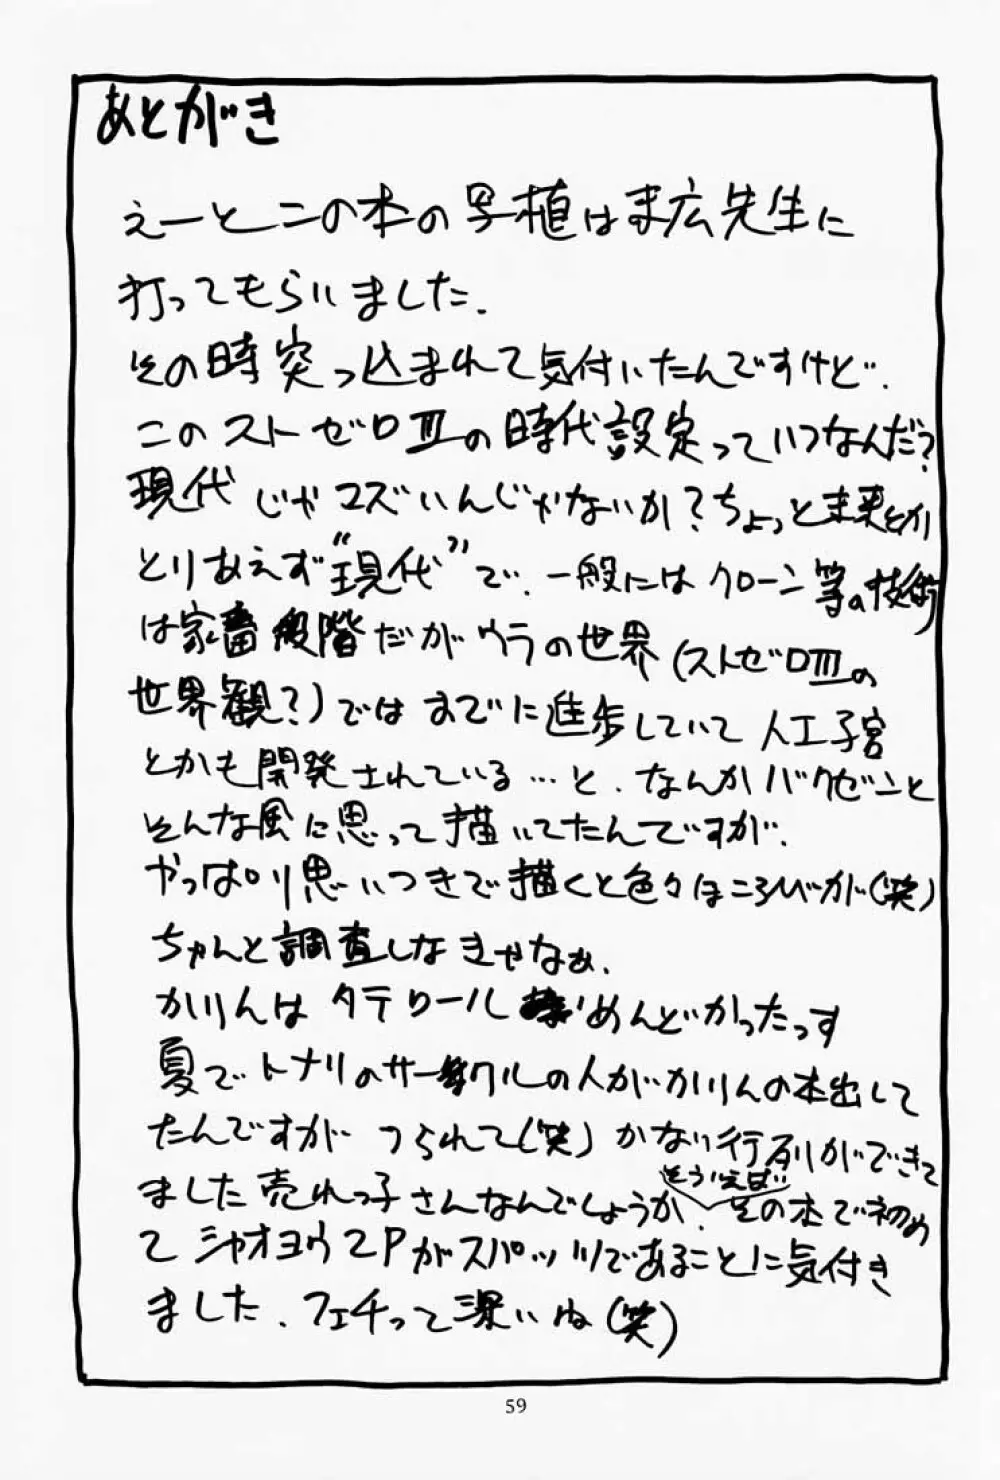 あとがき
えーとこの本の写植は末広先生に
打ってもらいました.
その時突っ込まれて気付いたんですけど.
このストゼロⅢの時代設定っていつなんだ?
現代じゃマズいんじゃないか?ちょっと未来とか
とりあえず“現代”で.一般にはクローン等の技術
は家畜段階だがウラの世界(ストゼロⅢの
世界観?)ではすでに進歩していて人工子宮
とかも開発されている…と.なんかバクゼンと
そんな風に思って描いてたんですが.
やっぱり思いつきで描くと色々ほころびが(笑)
ちゃんと調査しなきゃなぁ.
かりんはタテロールめんどかったっす
夏でトナリのサークルの人がかりんの本出して
たんですがつられて(笑)かない行列ができて
ました売れっ子さんなんでしょうか.そういえばその本で初め
て シャオユウ2Pがスパッツであることに気付き
ました.フェチって深いね(笑)
59